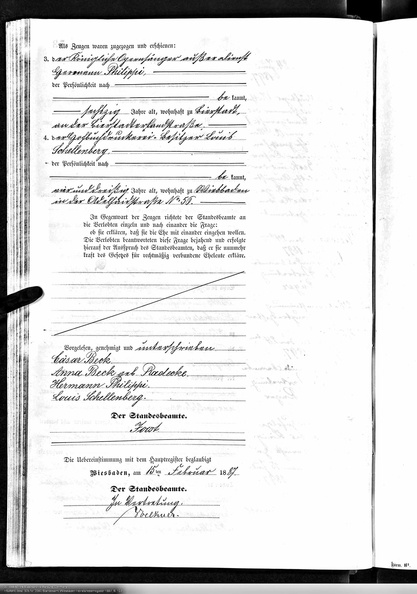 Als Zeugen waren zugezogen und erschienen:
3. der Königliche Opernsänger außer Dienst
Hermann Philippi,
der Persönlichkeit nach
be kannt,
sechzig Jahre alt, wohnhaft zu Bierstadt,
an der Bierstadterlandstraße.
4. der Hofbuchdruckerei-Besitzer Louis
Schellenberg
der Persönlichkeit nach
be kannt,
vierunddreißig Jahre alt, wohnhaft zu Wiesbaden
in der Adelhaidstraße No 55.
In Gegenwart der Zeugen richtete der Standesbeamte an
die Verlobten einzeln und nach einander die Frage:
ob sie erklären, daß sie die Ehe mit einander eingehen wollen.
Die Verlobten beantworteten diese Frage bejahend und erfolgte
hierauf der Ausspruch des Standesbeamten, daß er sie nunmehr
kraft des Gesetzes für rechtmäßig verbundene Eheleute erkläre.
Vorgelesen, genehmigt und unterschrieben
Cäsar Beck
Anna Beck geb. Radecke.
Hermann Philippi.
Louis Schellenberg.
Der Standesbeamte.
Jost
Die Uebereinstimmung mit dem Hauptregister beglaubigt
Wiesbaden, am 15ten Februar 1887.
Der Standesbeamte.
In Vertretung.